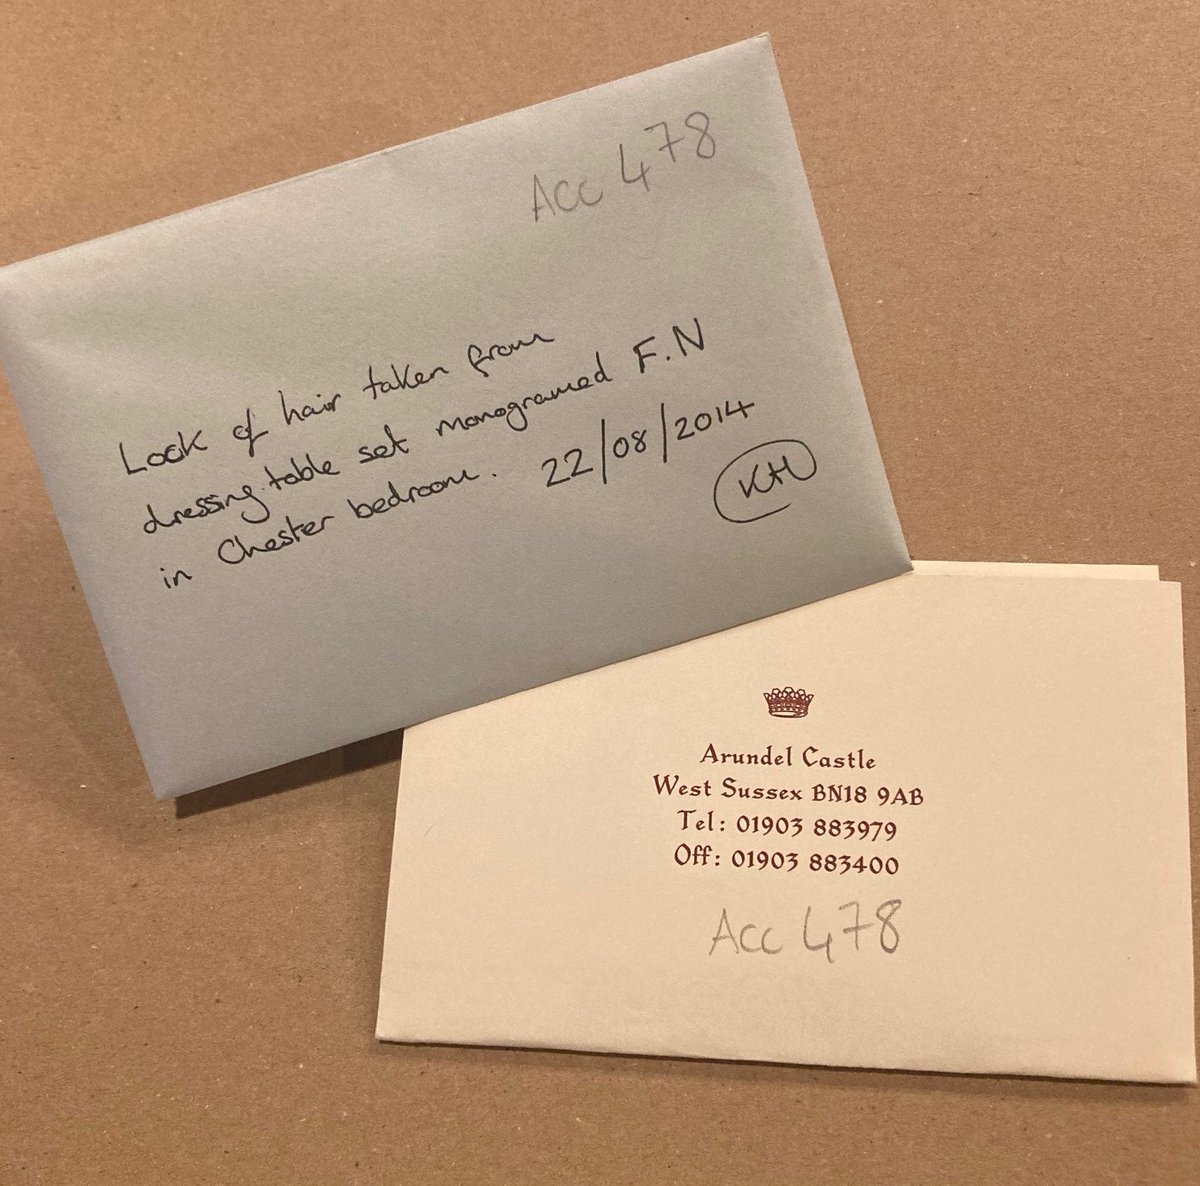 Acc 478
Lock of hair taken from
dressing table set monogramed F.N
in Chester bedroom. 22/08/2014
KH
Arundel Castle
West Sussex BN18 9AB
Tel: 01903 883979
Off: 01903 883400
Acc 478